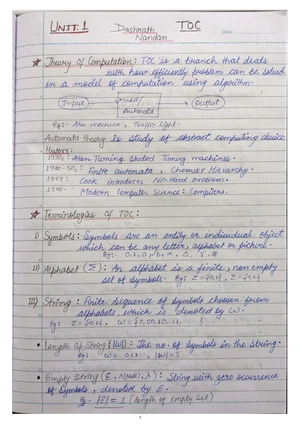 UNIT: 1 Dashrath Nandan TOC
* Theory of Computation: TOC is a branch that deals
with how efficiently problem can be solved
in a model of computation using algorithm.
Input Model/ Automata Output
Eg:- Atm machine, Traffic light.
Automata theory is study of abstract computing device
History:
1930; Alan Turning studied Turning machines.
1940-50; Finite automata, Chomsky Hierarchy.
1969: Cook introduces NP-Hard problem.
1970- Modern Computer Science: Compilers.
* Terminologies of TOC:
I) Symbols: Symbols are an entity or individual object
which can be any letter, alphabet or picture.
Eg:- 0,1,
II) Alphabet (Σ): An alphabet is a finite, non empty
set of symbols. Eg: Σ={0,1},
III) String: Finite sequence of symbols choosen from
alphabets which is denoted by ω.
Eg: Σ={0,1},
• Length of String (|W|): The no. of symbols in the string.
Eg:- |W|=3
• Empty String (ε, λ): String with zero occurence
of Symbols, denoted by ε.
|ε|=1 (length of empty set)
1